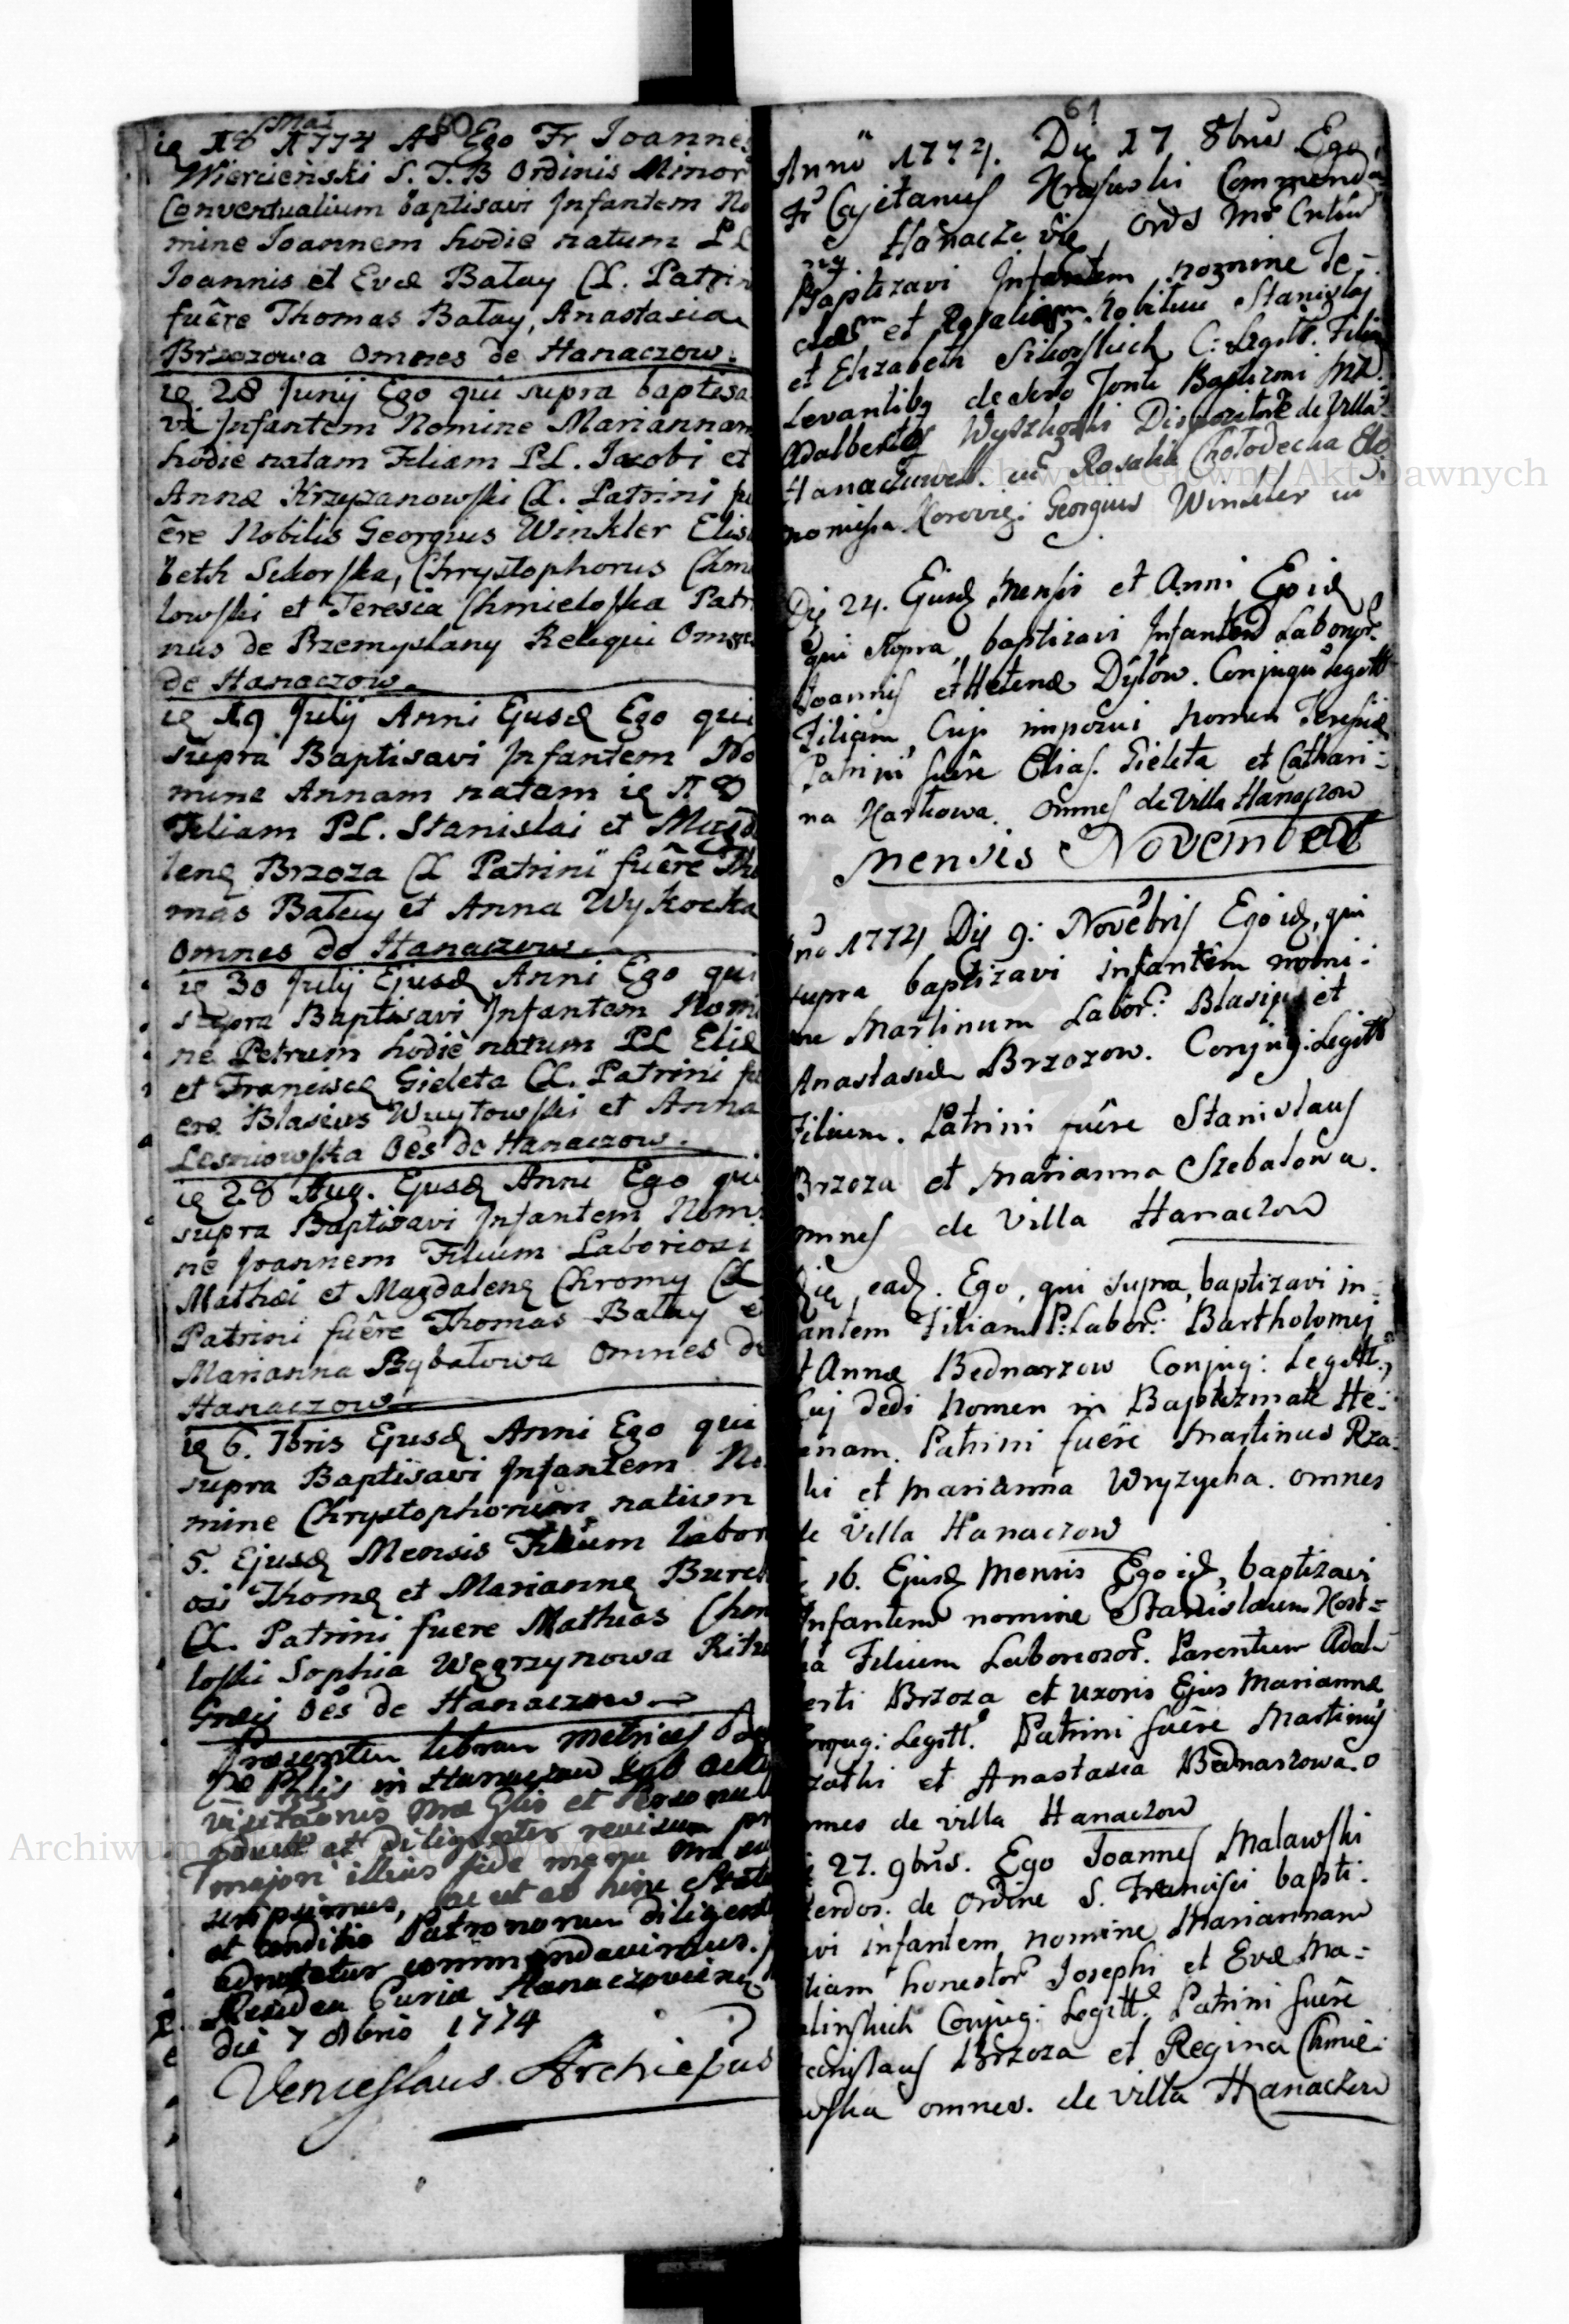 60
Mai
ię 18 1774 Ao Ego Fr Joannes
Wiercieński S. T. B Ordinis Minor
Conventualium baptisavi Infantem No
mine Joannem hodie natum PL
Joannis et Evæ Batay CL. Patrin
fuêre Thomas Batay, Anastasia
Brzozowa Omnes de Hanaczow.
ię 28 Junij Ego qui supra baptisa
vi Infantem Nomine Mariannam
hodie natam Filiam PL. Jacobi et
Annæ Krzyzanowski CL. Patrini fu
êre Nobilis Georgius Winkler Elisa
beth Sikorska, Chrystophorus Chmi
lowski et Teresia Chmieloska Patr
nus de Przemyslany Reliqui Omnes
de Hanaczow.
ię 19 Julij Anni Ejusd Ego qui
supra Baptisavi Infantem No
mine Annam natam ię 18
Filiam PL. Stanislai et Magd
lenę Brzoza CL Patrini fuêre Tho
mas Batay et Anna Wykocka
Omnes de Hanaczow.
ię 30 Julij Ejusd Anni Ego qui
supra Baptisavi Infantem Nomi
ne Petrum hodiè natum PL Eliæ
et Franciscę Gieleta CL. Patrini fu
ere Blasius Wuytowski et Anna
Lesniowska Oẽs de Hanaczow.
ię 28 Aug. Ejusd Anni Ego qui
supra Baptisavi Infantem Nomi
nè Joannem Filium Laboriosi
Mathæi et Magdalenę Chromy CL
Patrini fuêre Thomas Batay e
Marianna Rybatowa Omnes de
Hanaczow
ię 6. 7bris Ejusd Anni Ego qui
supra Baptisavi Infantem No
mine Chrystophorum natum
5. Ejusd Mensis Filium Labori
osi Thomę et Mariannę Burel
CL. Patrini fuere Mathias Chmi
loski Sophia Węgrzynowa Ritu
Græci Oẽs de Hanaczow
Præsentem librum metrices
in Hanaczow sub actu
visitaõnis nræ Glis et Personal
et diligenter revisum
majori illius fide manu nra su
scripsimus, ac ut ab hinc Status
et Conditio Patronorum diligent
adnotetur commendavimus.
Residen Curiæ Hanaczoviens
die 7 Obris 1774
Venceslaus Archiepus
61
Anno 1774. Dię 17 8bris Ego
Fr Cajetanus Krasuski Commenda
Hanaczoviæ, Ordis Mr Cntũm
Baptizavi Infantem nomine Te-
clam et Rosaliam Nobilium Stanislaj
et Elizabeth Sikorskich C: Legitt. Filiam
Levantibg de Sacro Fonte Baptismi
Adalbertg Wyszkoski Dispozitore de Villa
Hanaczow. cũ Rosalia Chołodecka
nomissa Georgius Winkler cũ
Dię 24. Ejusd Mensis et Anni Ego id
qui Supra, baptizavi Infantem Laborior.
Joannis et Helenæ Dylow. Conjugũ Legitt
Filiam, Cuj imposui nomen Teresiæ
Patrini fuêre Elias Gieleta et Cathari-
na Karkowa. Omnes de Villa Hanaczow
Mensis Novembris
no 1774 Dię 9: Novẽbris Ego id, qui
supra baptizavi infantem nomi-
ne Martinum Labor: Blasij et
Anastasiæ Brzozow. Conjug: Legitt
Filium. Patrini fuêre Stanislaus
Brzoza et Marianna Szebatowa.
mnes de Villa Hanaczow
Dię ead. Ego, qui supra, baptizavi in-
antem Filiam P: Labor: Bartholomej
t Annæ Bednarzow Conjug: Legitt,
Cuj dedi nomen in Baptizmate He-
enam. Patrini fuêre Martinus Rza-
ki et Marianna Wryzycha. omnes
de Villa Hanaczow
16. Ejusd Mensis Ego id, baptizavi
Infantem nomine Stanislaum Kost=
ka Filium Laborioror. Parentum Adal-
erti Brzoza et uxoris Ejus Mariannæ
onjug: Legitt. Patrini fuêre Martinus
zatki et Anastasia Bednarzowa. o
mnes de villa Hanaczow
27. 9bris. Ego Joannes Malawski
erdos. de Ordine S. Francisci bapti-
vi infantem nomine Mariannam
liam honestor Josephi et Evæ Ma-
linskich Conjug: Legitt. Patrini fuêre
tanislaus Brzoza et Regina Chmie-
wska omnes. de Villa Hanaczow
Archiwum Główne Akt Dawnych